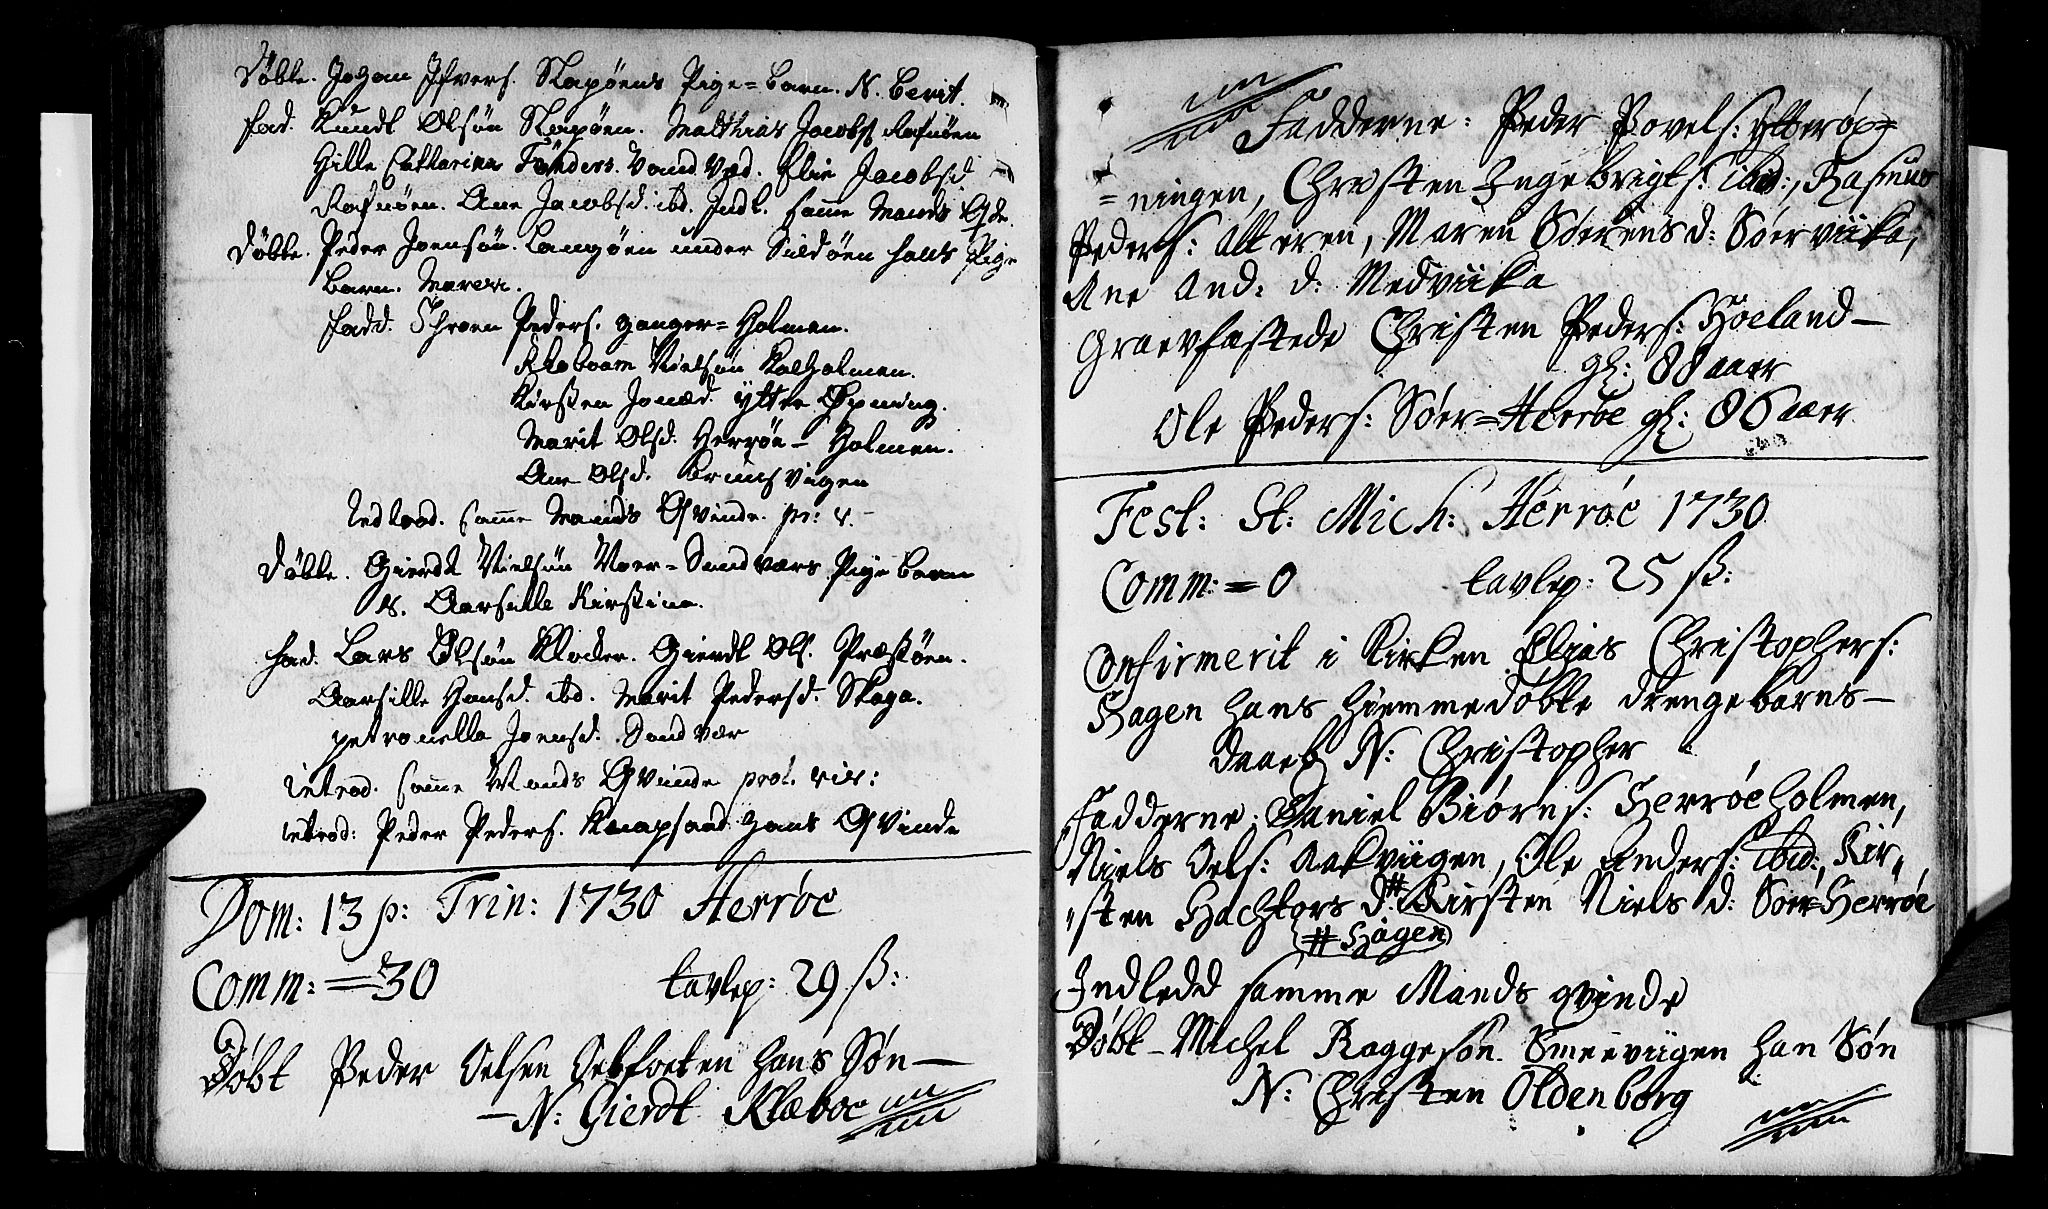 Döbte. Johan Ifvers. Slapöens Pige=barn. N. Berit.
fad. Knudt Olsön Slapöen. Matthias Jacobs. Rafnöen
Hille Catharina Tönders. Vandved. Elen Jacobsd.
Rafnöen. Ane Jacobsd. ibd. Indl. samme Mands Qvde.
Döbte. Peder Joensön. Langöen under Sildöen hans Pige
barn. Maren.
fadd. Thron Peders. Ganger=Holmen.
Roboam Nielsön Kalholmen.
Kirsten Jonæd. ytter Öpning.
Marit Olsd. Herröe-Holmen.
Ane Olsd. Brunsvigen
Introd. samme Mands Qvinde. pr: v.
Döbte. Gierdt Nielsön Noer-Sandværs Pige barn
N. Aarsille Kirstina.
fad. Lars Olsön Klocker. Gierdt Ols. Præstöen.
Aarsille Hansd. ibd. Marit Pedersd. Skaga.
Petronella Joensd. Sandvær
Introd. samme Mands Qvinde
introd: Peder Peders. Knapsand hans Qvinde
Dom: 13 p: Trin: 1730 Herröe
Comm: = 30 tavlep: 29 ß:
Döbt Peder Oelsen hans Søn —
— N: Gierdt Klæboe
Fadderne: Peder Povels: ytteröp=
=ningen, Christen Ingebrigts: ibid:, Rasmus
Peders: Alteren, Maren Sörensd: Söerviika,
Ane And: d: Medviika
Graevfastede Christen Peders: Höeland —
gl: 88 aaer
Ole Peders: Söer=Herröe gl: 86 aaer
Fest: St: Mich: Herröe 1730
Comm: = 0 tavlep: 25 ß:
Confirmerit i Kirken Elias Christophers:
Hagen hans hiemmedöbte drengebarns —
daab N: Christopher
Fadderne: Daniel Biörns: Herröeholmen,
Niels Oels: Aakviigen, Ole Anders: ibid:, Kir"
"sten Hachtors d:# Kirsten Niels d: Söer=Herröe
# Hagen
Indledd samme Mands qvinde
Döbt — Michel Raggesön Smeeviigen han Sön
N: Christen Oldenborg